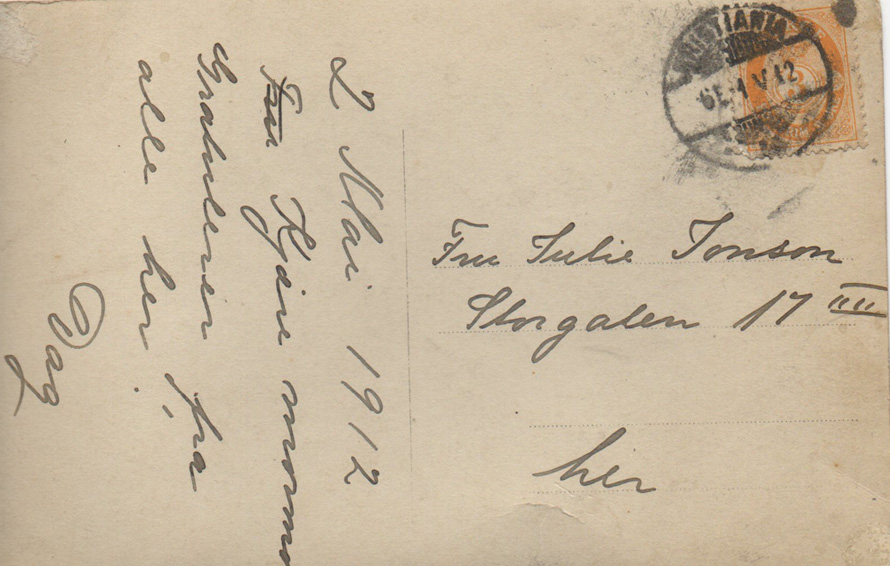 2 Mai 1912
Fru Kjære mormo
Gratulerer fra
alle her.
Dag
STIANIA
Fru Julie Jonson
Storgaten 17 IIII
her